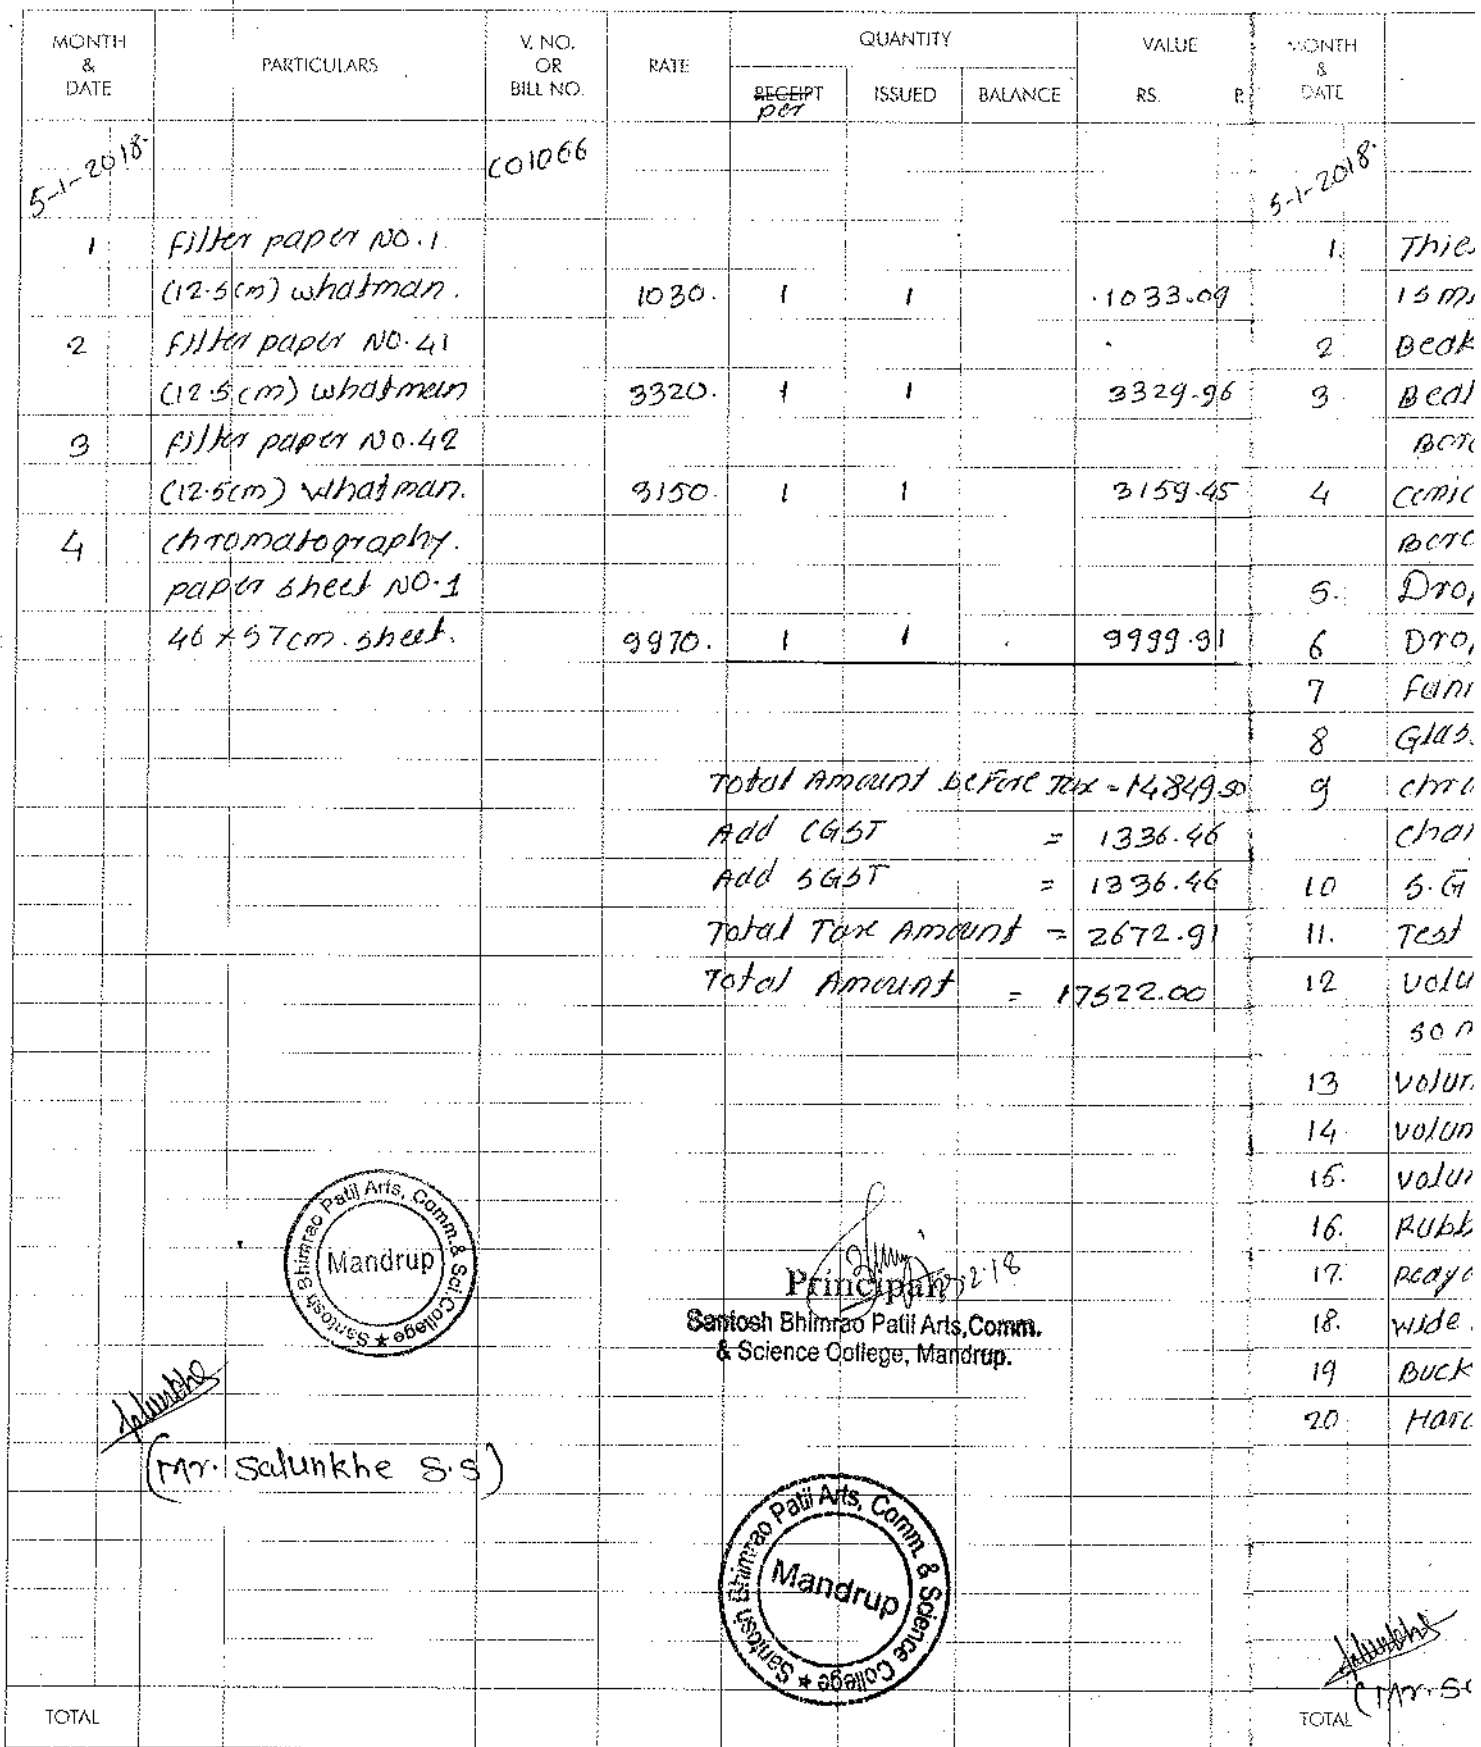 MONTH & DATE PARTICULARS V. NO. OR BILL NO. RATE QUANTITY VALUE
RECEIPT per ISSUED BALANCE RS. P.
5-1-2018. CO1066
1 Filter paper NO.1
(12.5cm) whatman. 1030. 1 1 1033.09
2 Filter paper NO.41
(12.5cm) whatman 3320. 1 1 3329.96
3 Filter paper NO.42
(12.5cm) Whatman. 3150. 1 1 3159.45
4 chromatography.
paper sheet NO.1
46 x 57cm. sheet. 9970. 1 1 9999.91
Total Amount before Tax = 14849.50
Add CGST = 1336.46
Add SGST = 1336.46
Total Tax Amount = 2672.91
Total Amount = 17522.00
Santosh Bhimrao Patil Arts, Comm.& Sci.College ★
Mandrup
Principal
Santosh Bhimrao Patil Arts,Comm.
& Science College, Mandrup.
Salunkhe
(Mr. Salunkhe S.S)
Santosh Bhimrao Patil Arts, Comm. & Science College ★
Mandrup
TOTAL
MONTH & DATE
5-1-2018.
1. Thie
15 m
2. Beak
3. Beak
Boro
4 conic
Boro
5. Drop
6 Drop
7 Funn
8 Glas
9 chro
char
10 S.G
11. Test
12 volu
50 m
13 volum
14. volum
15. volu
16. Rubb
17. Reag
18. wide
19 Buck
20. Hard
Salunkhe
(Mr. Sa
TOTAL